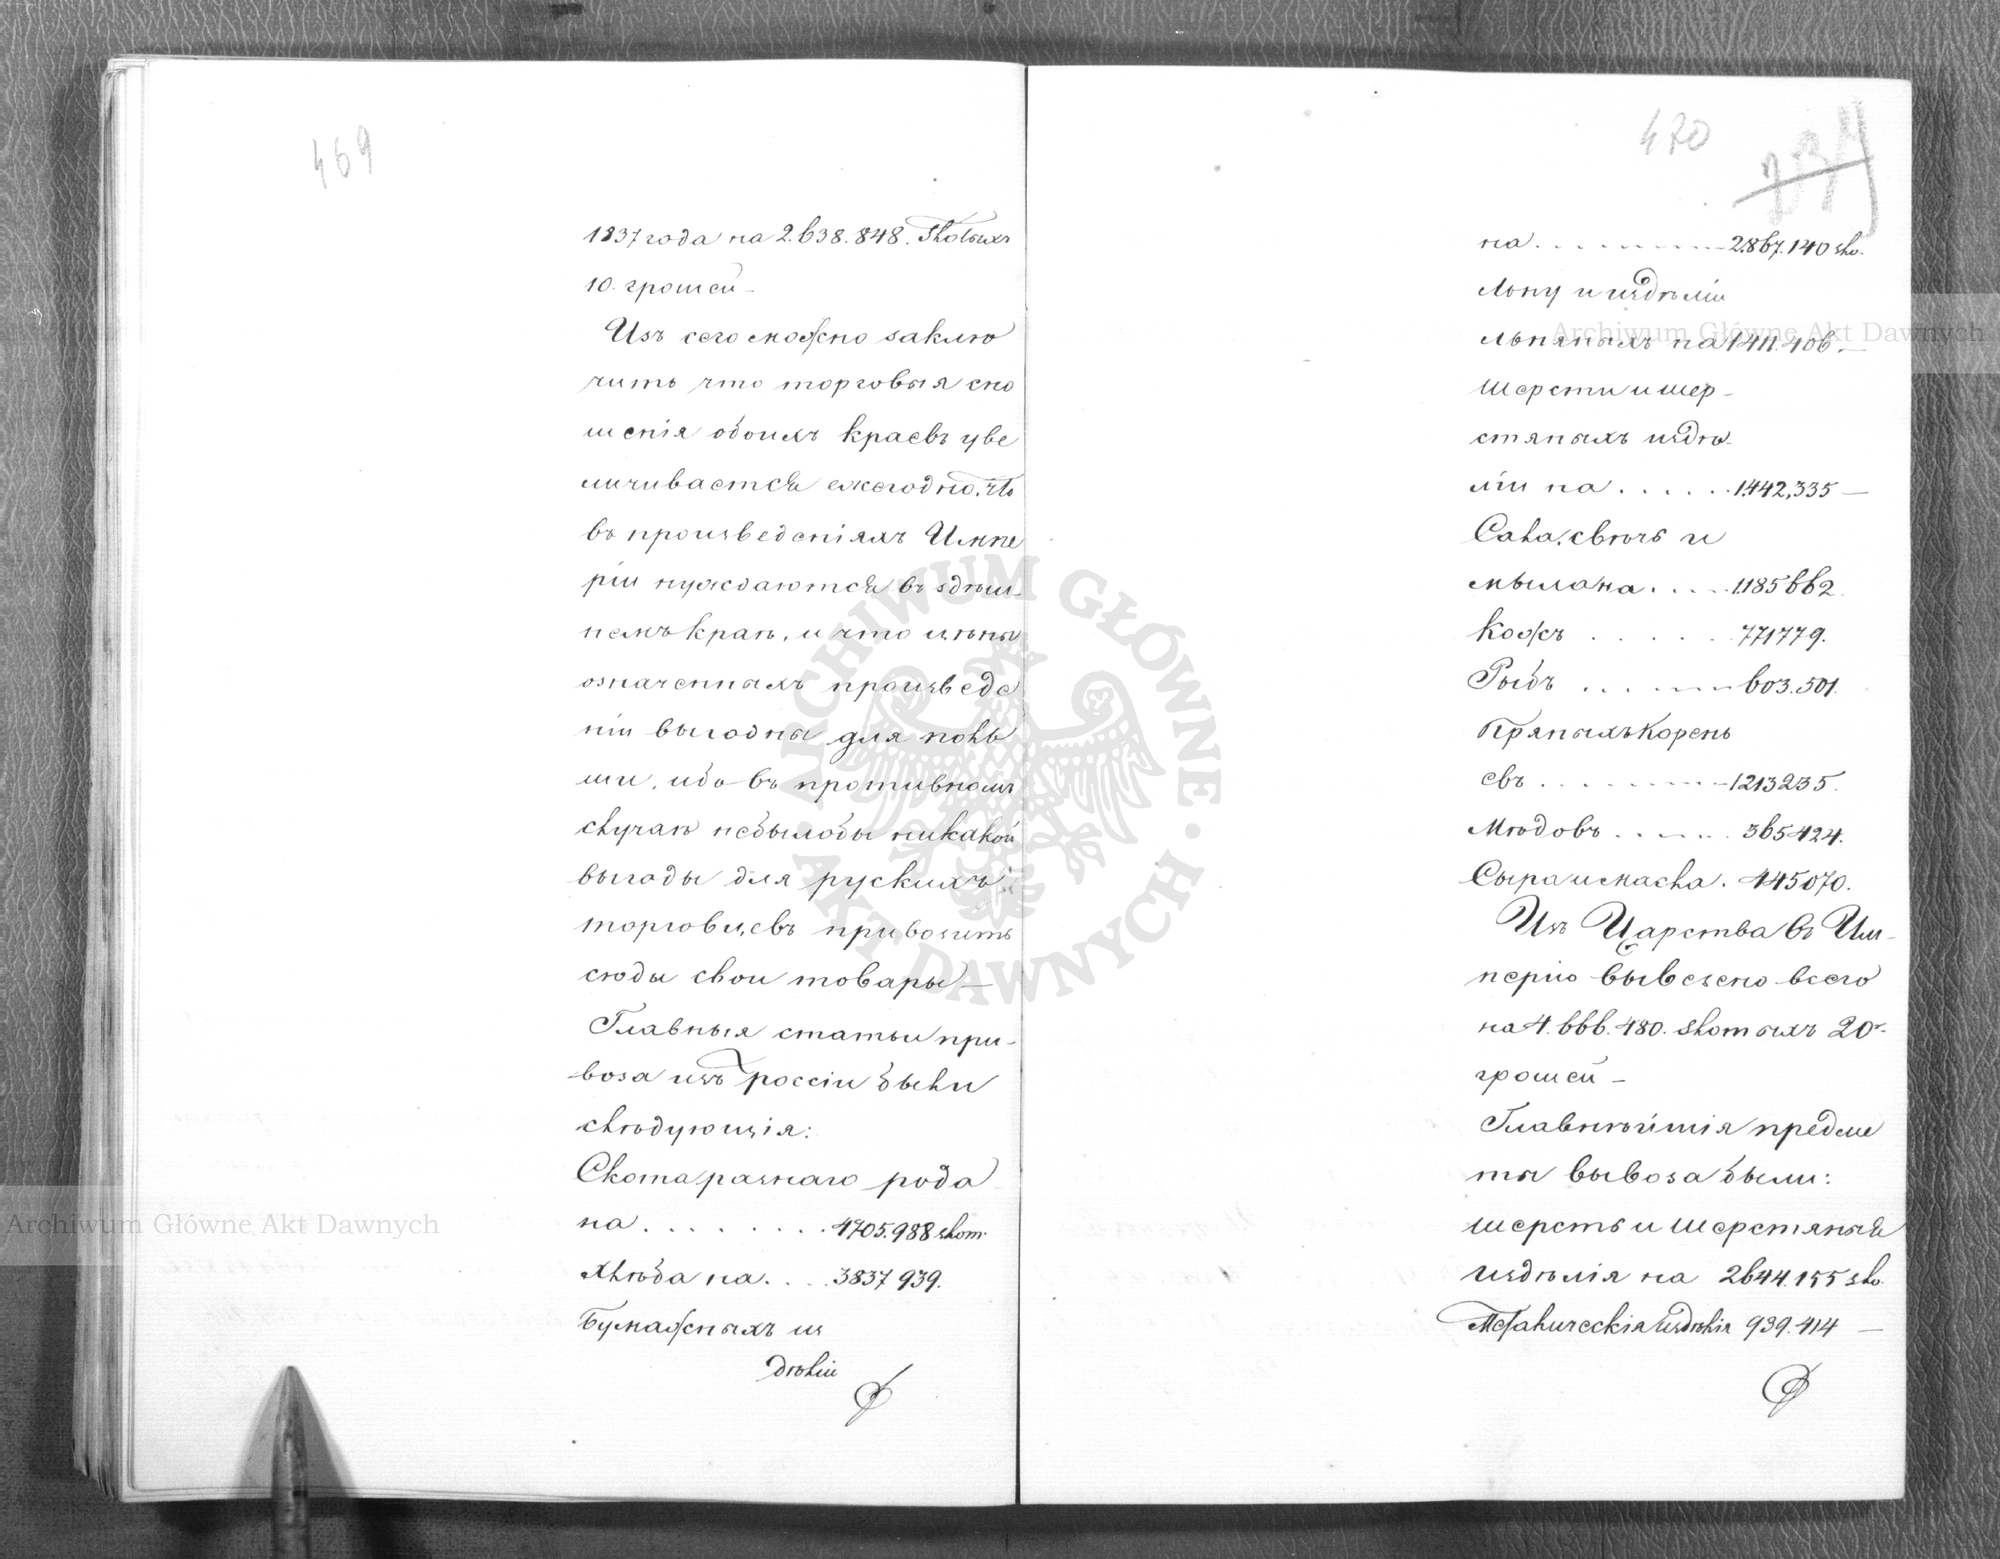 469
1837 года на 2.638.848. Злотыхъ
10. грошей –
Изъ сего можно заклю
чить что торговыя сно
шенія обоихъ краевъ уве
личивается ежегодно, что
въ произведеніяхъ Импе
ріи нуждаются въ здѣш-
немъ краѣ, и что цѣны
означенныхъ произведе
ніи выгодны для поль
ши, ибо въ противномъ
случаѣ небылобы никакой
выгоды для рускихъ
торговцевъ привозить
сюды свои товары —
Главныя статьи при-
воза изъ россіи были
слѣдующія:
Скота разнаго рода
на . . . . . . . . 4705.988 злот.
хлѣба на. . . . 3837 939.
Бумажныхъ из
дѣліи
470
234
на . . . . . . . . . 2.867.140 зло.
льну и издѣліи
льняныхъ на 1411.406 —
шерсти и шер-
стяныхъ издѣ-
ліи на . . . . . . 1.442,335 —
Сала, свѣчъ и
мыла на . . . . . 1.185 662.
кожъ . . . . . . 771779.
Рыбъ . . . . . . . 603.501.
Пряныхъ Корень
евъ . . . . . . . . . 1213235.
Мѣдовъ . . . . . . 365424.
Сыра и масла . 445070.
Изъ Царства въ Им-
перію вывезено всего
на 4.666.480. злотыхъ 20-
грошей –
Главнѣйшія предме
ты вывоза были:
шерсть и шерстяныя
издѣлія на 2644.155 зло.
Металическія издѣлія 939.414 —
Archiwum Główne Akt Dawnych
Archiwum Główne Akt Dawnych
ARCHIWUM GŁÓWNE • AKT DAWNYCH •